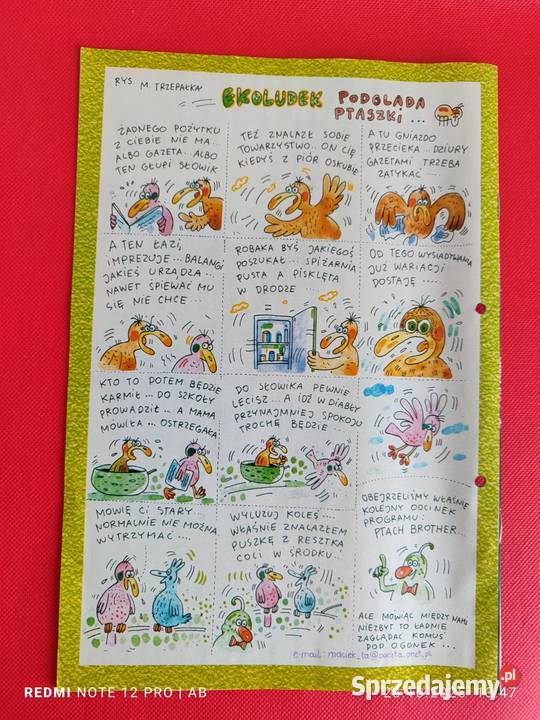 RYS. M. TRZEPAŁKA
EKOLUDEK PODGLĄDA
PTASZKI...
ŻADNEGO POŻYTKU
Z CIEBIE NIE MA...
ALBO GAZETA... ALBO
TEN GŁUPI SŁOWIK
TEŻ ZNALAZŁ SOBIE
TOWARZYSTWO.. ON CIĘ
KIEDYŚ Z PIÓR OSKUBIE
A TU GNIAZDO
PRZECIEKA... DZIURY
GAZETAMI TRZEBA
ZATYKAĆ ....
A TEN ŁAZI,
IMPREZUJE... BALANGI
JAKIEŚ URZĄDZA..
NAWET ŚPIEWAĆ MU
SIĘ NIE CHCE...
ROBAKA BYŚ JAKIEGOŚ
POSZUKAŁ... SPIŻARNIA
PUSTA A PISKLĘTA
W DRODZE ...
OD TEGO WYSIADYWANIA
JUŻ WARIACJI
DOSTAJĘ ....
KTO TO POTEM BĘDZIE
KARMIŁ... DO SZKOŁY
PROWADZIŁ... A MAMA
MÓWIŁA... OSTRZEGAŁA
DO SŁOWIKA PEWNIE
LECISZ... A IDŹ W DIABŁY
PRZYNAJMNIEJ SPOKOJU
TROCHĘ BĘDZIE ...
MÓWIĘ CI STARY
NORMALNIE NIE MOŻNA
WYTRZYMAĆ ....
WYLUZUJ KOLEŚ....
WŁAŚNIE ZNALAZŁEM
PUSZKĘ Z RESZTKĄ
COLI W ŚRODKU..
OBEJRZELIŚMY WŁAŚNIE
KOLEJNY ODCINEK
PROGRAMU:
PTACH BROTHER...
ALE MÓWIĄC MIĘDZY NAMI
NIEZBYT TO ŁADNIE
ZAGLĄDAĆ KOMUŚ
POD OGONEK...
e-mail: maciek_ta@poczta.onet.pl
REDMI NOTE 12 PRO | AB
Sprzedajemy.pl